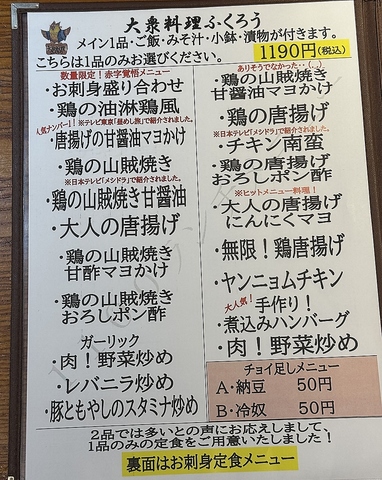 大衆料理ふくろう
メイン1品・ご飯・みそ汁・小鉢・漬物が付きます。
こちらは1品のみお選びください。 1190円(税込)
数量限定!赤字覚悟メニュー
・お刺身盛り合わせ
・鶏の油淋鶏風
人気ナンバー1! ※テレビ東京「昼めし旅」で紹介されました。
・唐揚げの甘醤油マヨかけ
・鶏の山賊焼き
※日本テレビ「メシドラ」で紹介されました。
・鶏の山賊焼き甘醤油
・大人の唐揚げ
・鶏の山賊焼き
甘酢マヨかけ
・鶏の山賊焼き
おろしポン酢
ガーリック
・肉!野菜炒め
・レバニラ炒め
・豚ともやしのスタミナ炒め
ありそうでなかった・・(..)
・鶏の山賊焼き
甘醤油マヨかけ
・鶏の唐揚げ
※日本テレビ「メシドラ」で紹介されました。
・チキン南蛮
・鶏の唐揚げ
おろしポン酢
※ヒットメニュー料理!
・大人の唐揚げ
にんにくマヨ
・無限!鶏唐揚げ
・ヤンニョムチキン
大人気! 手作り!
・煮込みハンバーグ
・肉!野菜炒め
チョイ足しメニュー
A・納豆 50円
B・冷奴 50円
2品では多いとの声にお応えしまして、
1品のみの定食をご用意いたしました!
裏面はお刺身定食メニュー